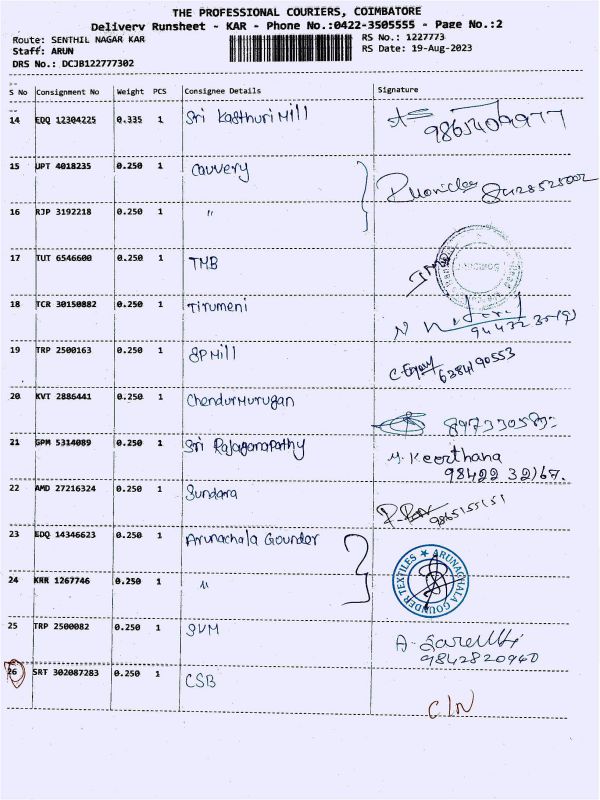 THE PROFESSIONAL COURIERS, COIMBATORE
Delivery Runsheet - KAR - Phone No.:0422-3505555 - Page No.:2
Route: SENTHIL NAGAR KAR RS No.: 1227773
Staff: ARUN RS Date: 19-Aug-2023
DRS No.: DCJB122777302
S No Consignment No Weight PCS Consignee Details Signature
14 EDQ 12304225 0.335 1 Sri Kasthuri Mill 9865409977
15 UPT 4018235 0.250 1 Cauvery 8428525002
16 RJP 3192218 0.250 1 "
17 TUT 6546600 0.250 1 TMB
18 TCR 30150882 0.250 1 Tirumeni
19 TRP 2500163 0.250 1 SP Mill 6384190553
20 KVT 2886441 0.250 1 Chendur Murugan
21 GPM 5314089 0.250 1 Sri Rajaganapathy M. Keerthana
98422 32167.
22 AMD 27216324 0.250 1 Sundara 9865155151
23 EDQ 14346623 0.250 1 Arunachala Gounder
24 KRR 1267746 0.250 1 " ARUNACHALA GOUNDER TEXTILES
25 TRP 2500082 0.250 1 SVM A.
9842820940
26 SRT 302087283 0.250 1 CSB
C/N